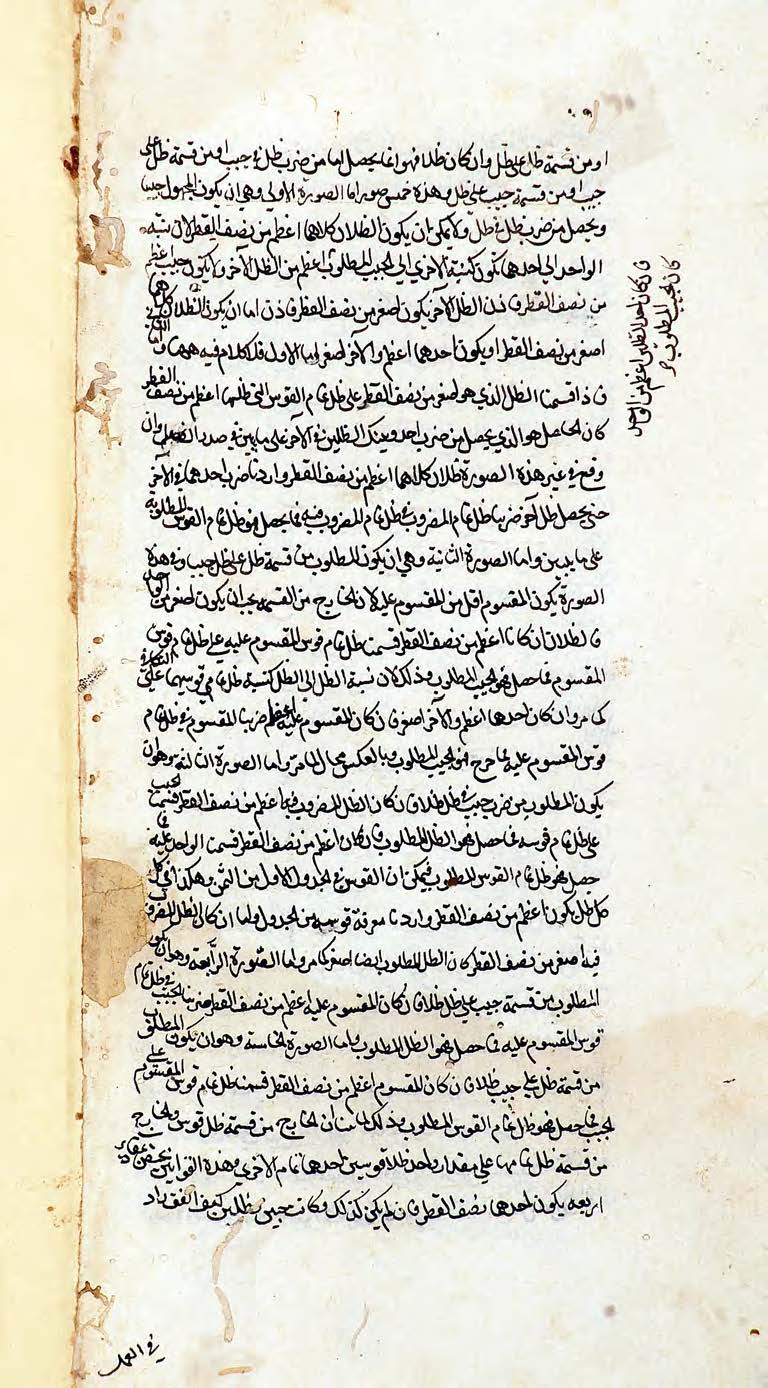 او من قسمة ظل على ظل وان كان ظلا فهو انما يحصل اما من ضرب ظل في جيب او من قسمة ظل على
جيب او من قسمة جيب على ظل وهذه خمس صور اما الصورة الاولى وهي ان يكون المجهول جيبا
ويحصل من ضرب ظل في ظل ولا يمكن ان يكون الظلان كلاهما اعظم من نصف القطر لان نسبة
الواحد الى احدهما تكون كنسبة الاخرى الى الجيب المطلوب اعظم من الظل الاخر ولا يكون جيب اعظم
من نصف القطر فاذن الظل الاخر يكون اصغر من نصف القطر فاذن اما ان يكون الظلان كلاهما
اصغر من نصف القطر او يكون احدهما اعظم والاخر اصغر اما الاول فلا كلام فيه ههنا واما
فاذا قسمنا الظل الذي هو اصغر من نصف القطر على ظل تمام القوس التي ظلها اعظم من نصف القطر
كان الحاصل هو الذي يحصل من ضرب احد وينك الظلين في الاخر على ما بين في صدر وان
وقع في غير هذه الصورة ظلان كلاهما اعظم من نصف القطر واردنا ضرب احدهما في الاخر
حتى يحصل ظل اخر ضربنا ظل تمام المضروب في ظل تمام المضروب فيه فما يحصل فهو ظل تمام القوس المطلوبة
على ما يدين واما الصورة الثانية وهي ان يكون المطلوب من قسمة ظل على ظل جيبا وفي هذه
الصورة يكون المقسوم اقل من المقسوم عليه لان الخارج من القسمة يجب ان يكون اصغر من الواحد
فالظلان ان كانا اعظم من نصف القطر قسمنا ظل تمام قوس المقسوم عليه على ظل تمام قوس
المقسوم فما حصل فهو الجيب المطلوب وذلك لان نسبة الظل الى الظل كنسبة ظل تمامي قوسيهما على
كما مر وان كان احدهما اعظم والاخر اصغر فان كان المقسوم عليه اعظم ضربنا المقسوم في ظل تمام
قوس المقسوم عليه فما خرج فهو الجيب المطلوب وبالعكس محال لما مر واما الصورة الثالثة وهو ان
يكون المطلوب من ضرب جيب في ظل ظلا فان كان الظل المضروب فيه اعظم من نصف القطر قسمنا الجيب
على ظل تمام قوسه فما حصل فهو الظل المطلوب فان كان اعظم من نصف القطر قسمنا الواحد عليه فما
حصل فهو ظل تمام القوس المطلوب فيمكن ان القوس في الجدول الاول من الثمن وهكذا في كل
كل ظل يكون اعظم من نصف القطر واردنا معرفة قوسه من الجدول واما ان كان الظل المضروب
فيه اصغر من نصف القطر كان الظل المطلوب ايضا اصغر كما مر واما الصورة الرابعة وهو ان يكون
المطلوب من قسمة جيب على ظل ظلا فان كان المقسوم عليه اعظم من نصف القطر ضربنا الجيب في ظل تمام
قوس المقسوم عليه فما حصل فهو الظل المطلوب واما الصورة الخامسة وهو ان يكون المطلوب
من قسمة ظل على جيب ظلا فان كان المقسوم اعظم من نصف القطر قسمنا ظل تمام قوس المقسوم على
الجيب فما حصل فهو ظل تمام القوس المطلوب وذلك ان الخارج من قسمة ظل قوس
من قسمة ظل تمامها على مقدار واحد ظلا قوسين احدهما تمام الاخرى وهذه القوانين
اربعه يكون احدهما نصف القطر فان لم يكن كذلك وكانت جيبين وظلين كيف اتفق راد
فان كان احد الظلين اعظم من الواحد
كان الجيب المطلوب
في العمل